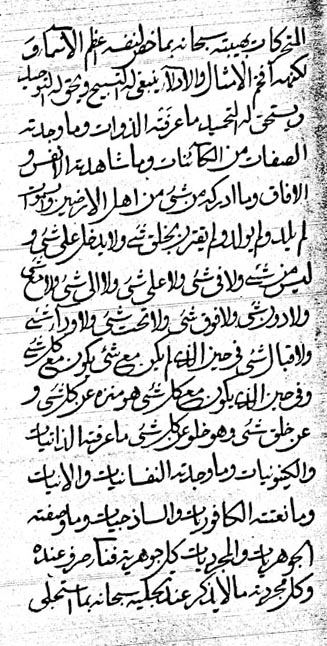 المتحركات بهيبته سبحانه بما خص لنفسه اعظم الاسماء و
لكنهه افخم الامثال والادلاء ينبغى له التسبيح ويحق له التوحيد
ويستحق له التحميد ما عرفته الذوات وما وجدته
الصفات من الكائنات وما شاهدته الانفس و
الافاق وما ادركه من شئ من اهل الارضين والسموات
لم يلد ولم يولد ولم يقترن بخلق شئ ولا يدخل على شئ و
ليس من شئ ولا فى شئ ولا على شئ ولا الى شئ ولا مع شئ
ولا دون شئ ولا فوق شئ ولا تحت شئ ولا وراء شئ
ولا قبال شئ فى حين الذى لم يكن مع شئ يكون مع كل شئ
وفى حين الذى يكون مع كل شئ هو منزه عن كل شئ و
عن خلق شئ وهو خلو عن كل شئ ما عرفته الذاتيات
والكينونيات وما وجدته النفسانيات والانيات
وما نعتته الكافوريات والساذجيات وما وصفته
الجوهريات والمجرديات كل جوهرية فناء صرف عنده
وكل مجردية ما لا يذكر عند تحكيه سبحانه بما استعلى